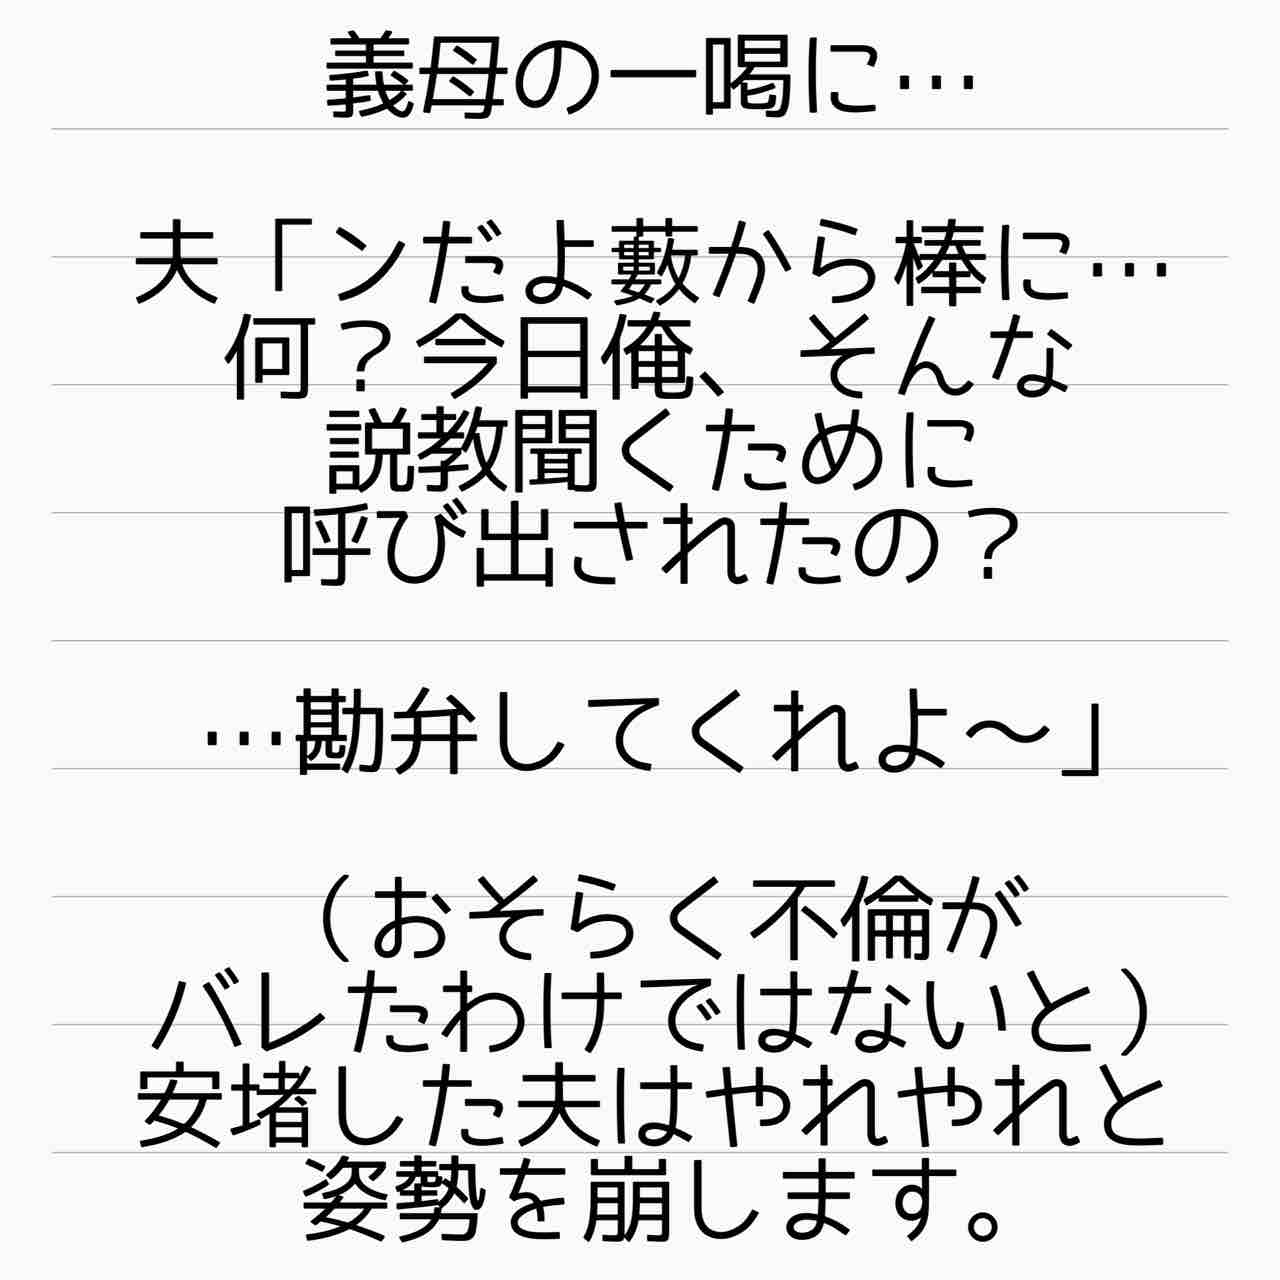 義母の一喝に…
夫「ンだよ藪から棒に…
何？今日俺、そんな
説教聞くために
呼び出されたの？
…勘弁してくれよ～」
（おそらく不倫が
バレたわけではないと）
安堵した夫はやれやれと
姿勢を崩します。